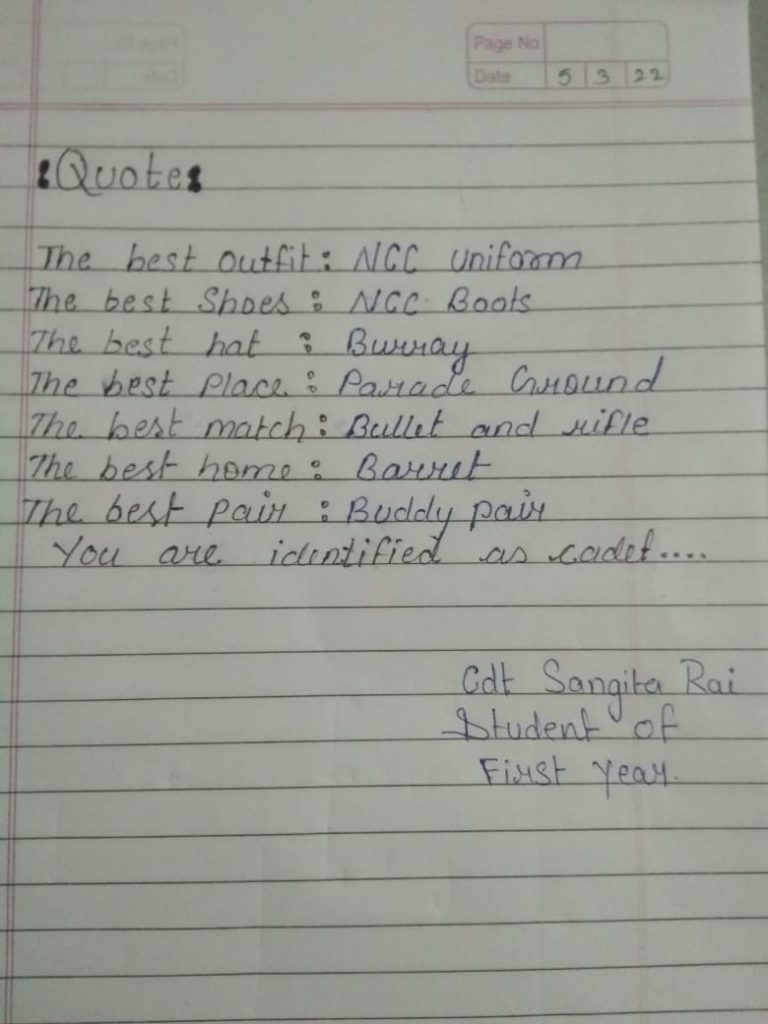 Page No
Date 5 3 22
:Quote:
The best outfit: NCC uniform
The best Shoes: NCC Boots
The best hat : Burray
The best Place: Parade Ground
The best match: Bullet and rifle
The best home: Barret
The best Pair : Buddy pair
You are identified as cadet....
Cdt Sangita Rai
Student of
First Year.